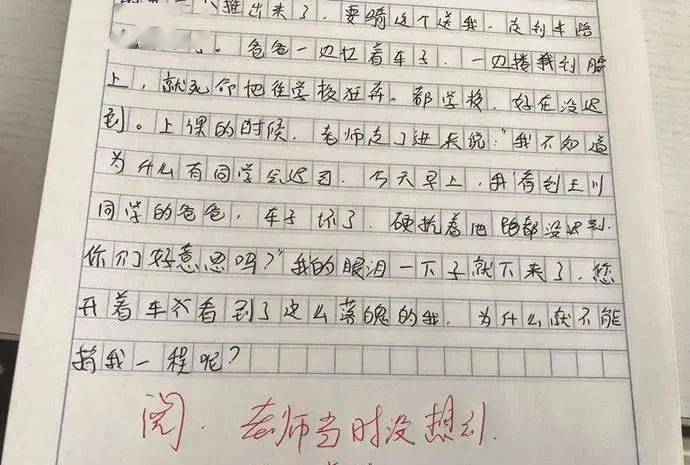 推出来了，要骑这个送我，走到半路
。爸爸一边扛着车子，一边搂我到腰
上，就死命地往学校狂奔。到学校，好在没迟
到。上课的时候，老师走了进来说："我不知道
为什么有同学会迟到，今天早上，我看到王川
同学的爸爸，车子坏了，硬扛着他跑都没迟到.
你们好意思吗？"我的眼泪一下子就下来了，您
开着车都看到了这么落魄的我，为什么就不能
捎我一程呢？
阅. 老师当时没想到.